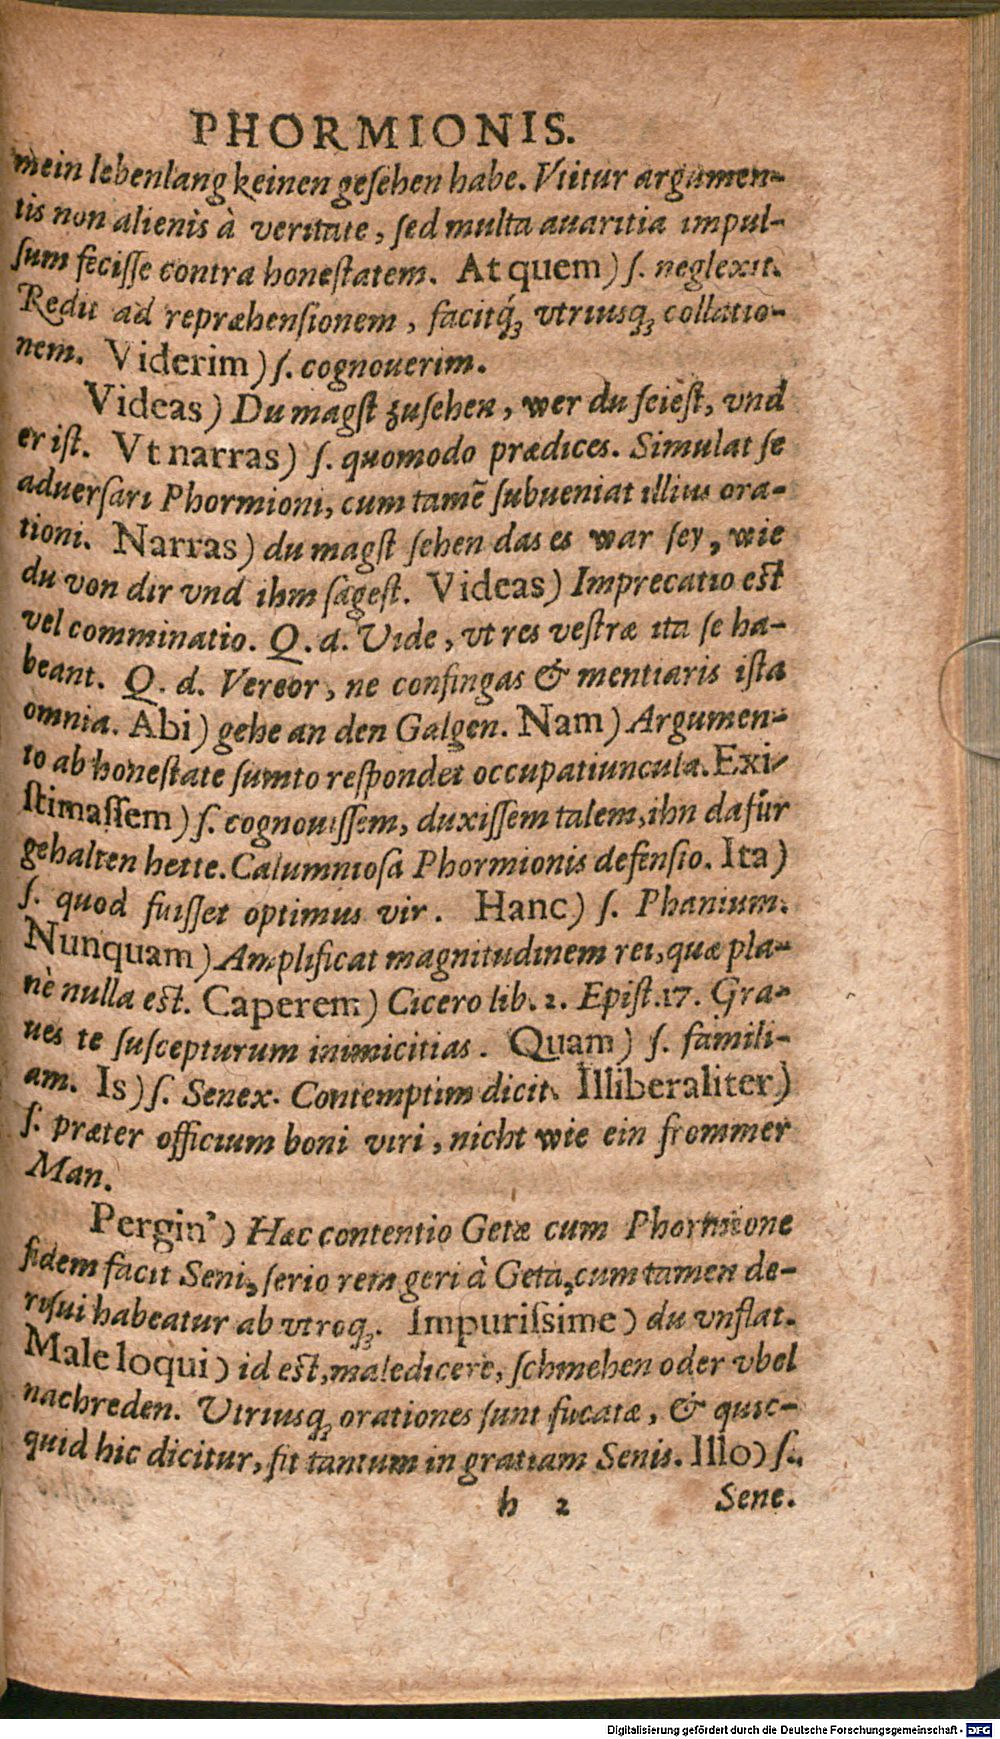 PHORMIONIS.
mein lebenlang keinen geſehen habe. Vtitur argumen-
tis non alienis à veritate, ſed multa auaritia impul-
ſum feciſſe contra honeſtatem. At quem) ſ. neglexit.
Redit ad repræhenſionem, facitq́ꝫ vtriusqꝫ collatio-
nem. Viderim) ſ. cognouerim.
Videas) Du magſt zuſehen, wer du ſeieſt, vnd
er iſt. Vt narras) ſ. quomodo prædices. Simulat ſe
aduerſari Phormioni, cum tamē ſubueniat illius ora-
tioni. Narras) du magſt ſehen das es war ſey, wie
du von dir vnd ihm ſageſt. Videas) Imprecatio eſt
vel comminatio. Q. d. Vide, vt res veſtræ ita ſe ha-
beant. Q. d. Vereor, ne confingas & mentiaris iſta
omnia. Abi) gehe an den Galgen. Nam) Argumen-
to ab honeſtate ſumto reſpondet occupatiuncula. Exi-
ſtimaſſem) ſ. cognouiſſem, duxiſſem talem, ihn dafür
gehalten hette. Calumnioſa Phormionis defenſio. Ita)
ſ. quod fuiſſet optimus vir. Hanc) ſ. Phanium.
Nunquam) Amplificat magnitudinem rei, quæ pla-
nè nulla eſt. Caperem) Cicero lib. 2. Epiſt. 17. Gra-
ues te ſuſcepturum inimicitias. Quam) ſ. famili-
am. Is) ſ. Senex. Contemptim dicit. Illiberaliter)
ſ. præter officium boni viri, nicht wie ein frommer
Man.
Pergin') Hæc contentio Getæ cum Phormione
fidem facit Seni, ſerio rem geri à Geta, cum tamen de-
riſui habeatur ab vtroqꝫ. Impuriſsime) du vnflat.
Male loqui) id eſt, maledicere, ſchmehen oder vbel
nachreden. Vtriusqꝫ orationes ſunt fucatæ, & quic-
quid hic dicitur, fit tantum in gratiam Senis. Illo) ſ.
h 2 Sene.
Digitalisierung gefördert durch die Deutsche Forschungsgemeinschaft - DFG